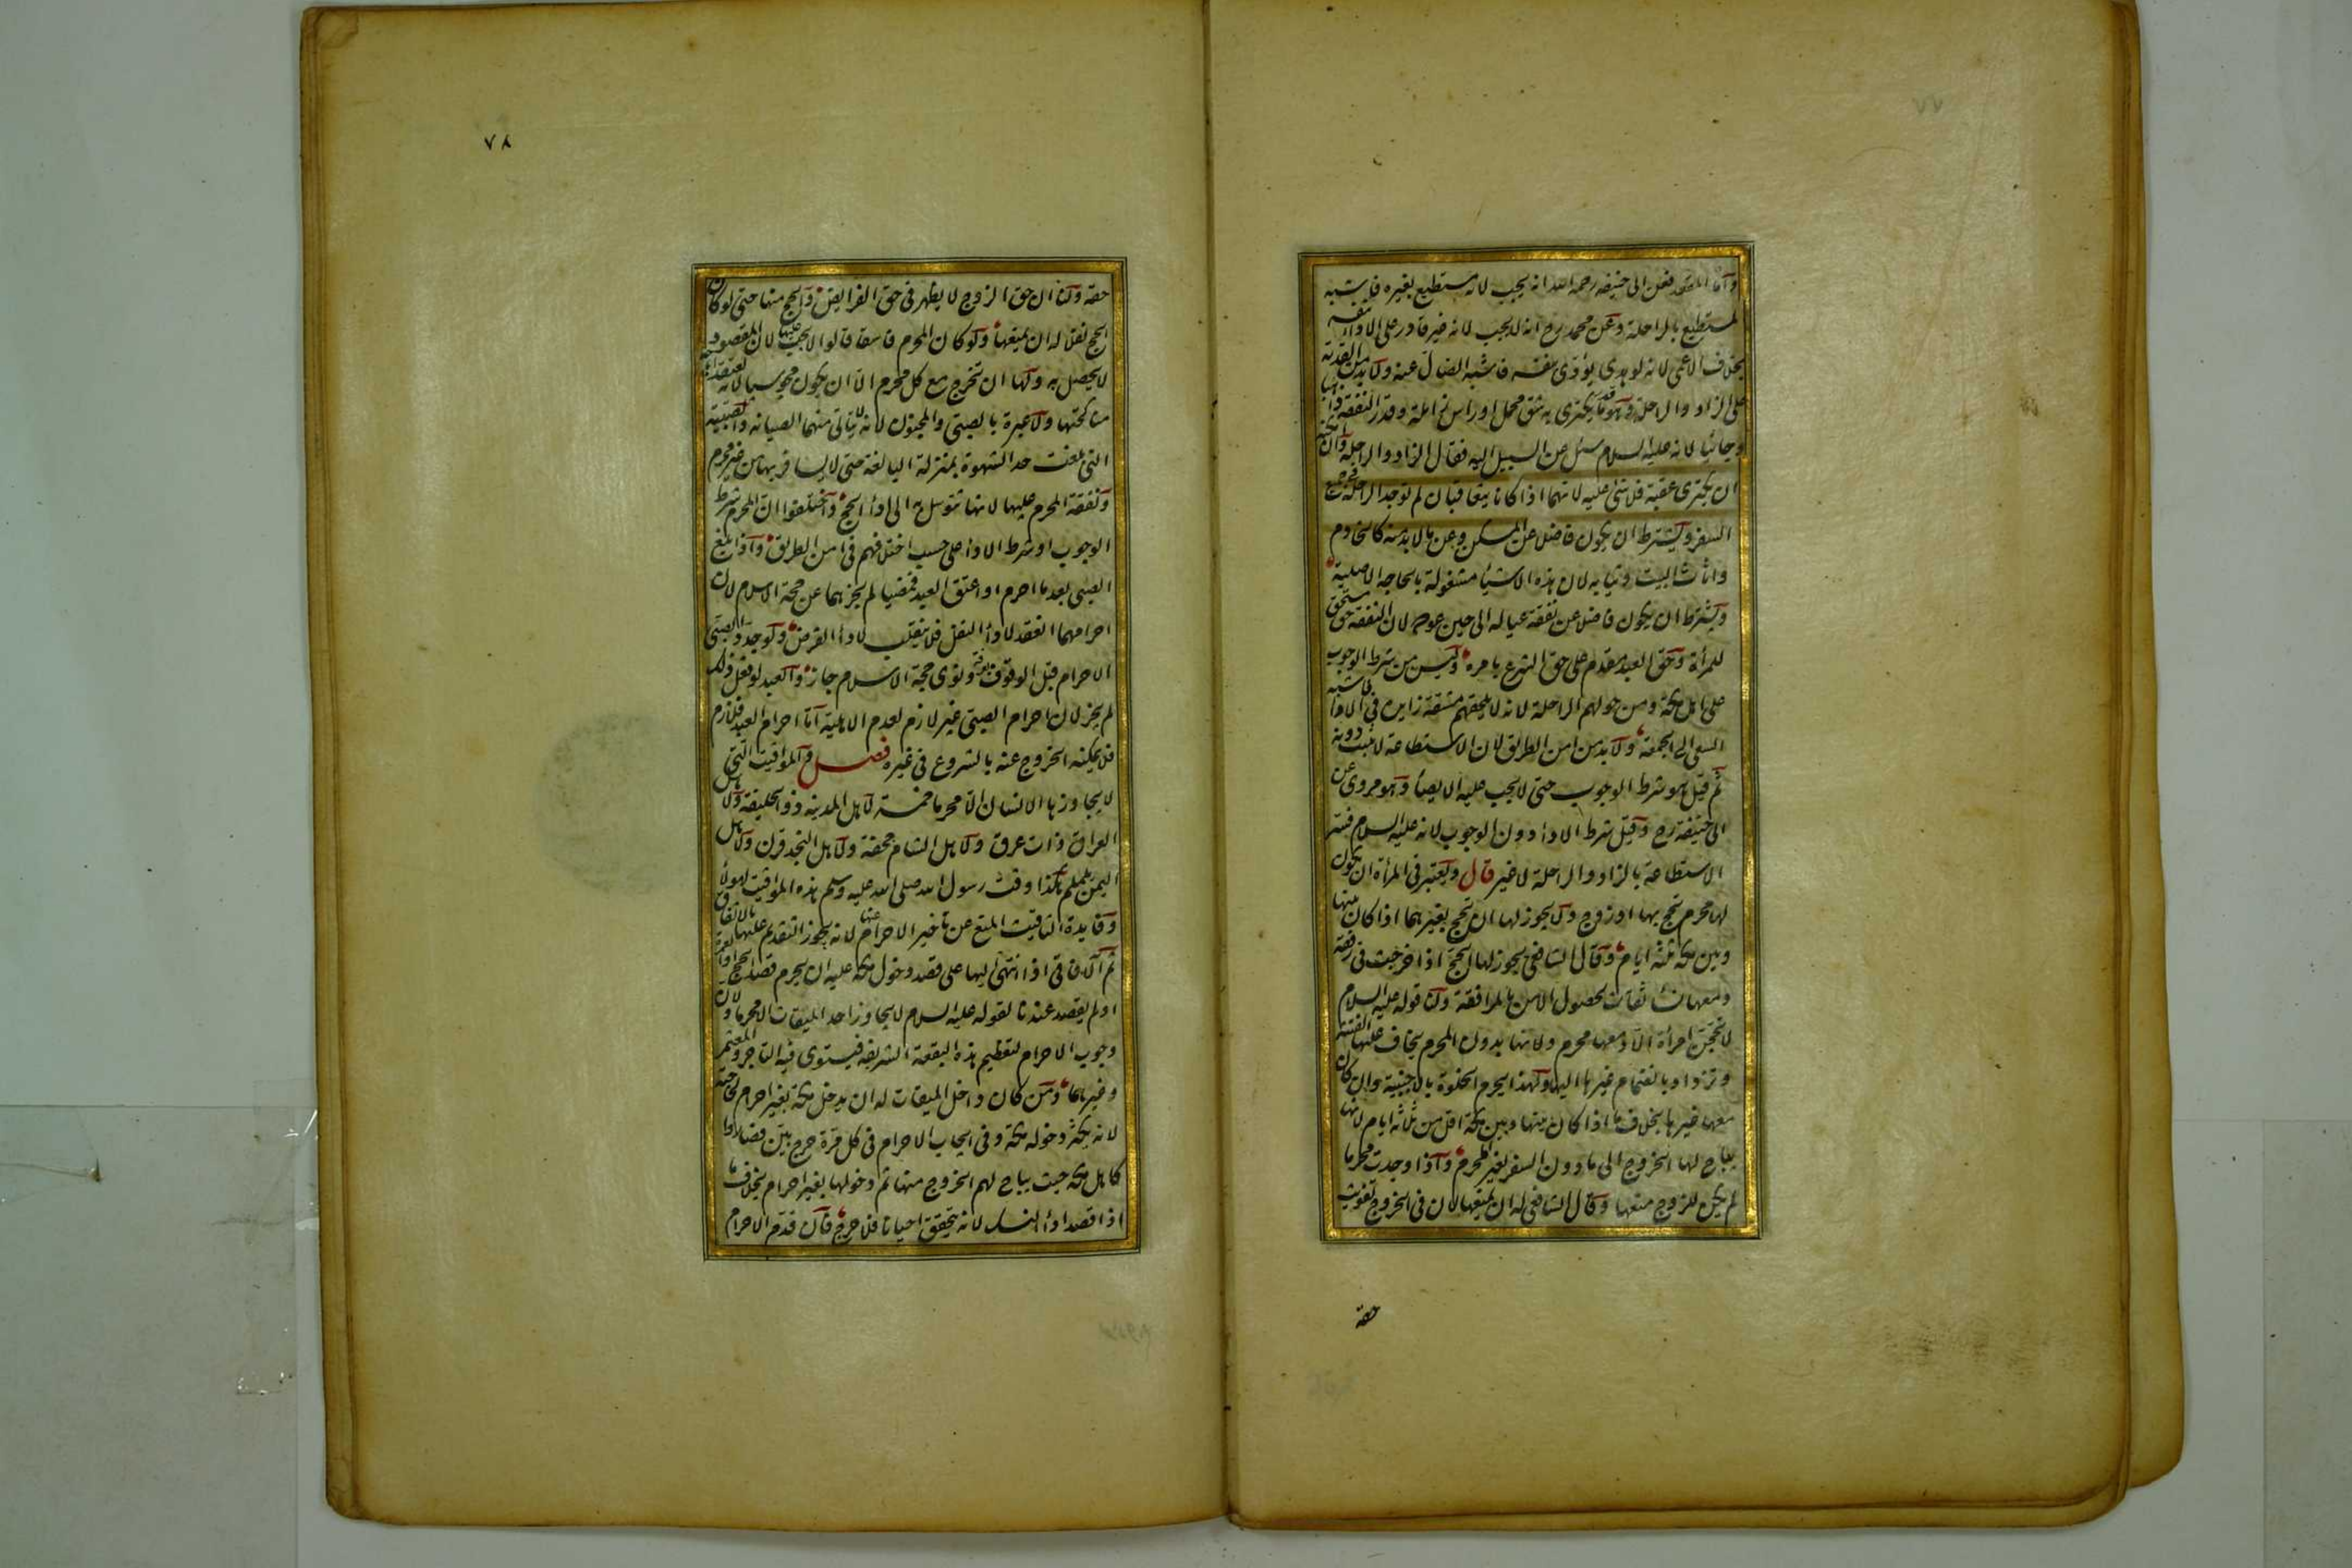 ٧٧
واما المقعد فعن ابى حنيفة رحمه الله انه يجب لانه مستطيع بغيره فاشبه
المستطيع بالراحلة وعن محمد رح انه لا يجب لانه غير قادر على الاداء بنفسه
بخلاف الاعمى لانه لو هدى يؤدى بنفسه فاشبه الضال عنه ولا بد من القدرة
على الزاد والراحلة وهو قدر ما يكترى به شق محمل او راس زاملة وقدر النفقة ذاهبا
وجائيا لانه عليه السلام سئل عن السبيل اليه فقال الزاد والراحلة وان امكنه
ان يكترى عقبة فلا شئ عليه لانهما اذا كانا يتعاقبان لم توجد الراحلة فى جميع
السفر ويشترط ان يكون فاضلا عن المسكن وعن ما لا بد منه كالخادم
واثاث البيت وثيابه لان هذه الاشياء مشغولة بالحاجة الاصلية
ويشترط ان يكون فاضلا عن نفقة عياله الى حين عوده لان النفقة حق مستحق
للمرأة وحق العبد مقدم على حق الشرع بامره وليس من شرط الوجوب
على اهل مكة ومن حولهم الراحلة لانه لا يلحقهم مشقة زايدة فى الاداء فاشبه
السعى الى الجمعة ولا بد من امن الطريق لان الاستطاعة لا تثبت دونه
ثم قيل هو شرط الوجوب حتى لا يجب عليه الايصاء وهو مروى عن
ابى حنيفة رح وقيل شرط الاداء دون الوجوب لانه عليه السلام فسر
الاستطاعة بالزاد والراحلة لا غير قال ويعتبر فى المرأة ان يكون
لها محرم تحج بها او زوج ولا يجوز لها ان تحج بغيرهما اذا كان بينها
وبين مكة ثلثة ايام وقال الشافعى يجوز لها الحج اذا خرجت فى رفقة
ومعها نساء ثقات لحصول الامن بالمرافقة ولنا قوله عليه السلام
لا تحجن امرأة الا ومعها محرم ولانها بدون المحرم يخاف عليها الفتنة
وتزداد بانضمام غيرها اليها ولهذا يحرم الخلوة بالاجنبية وان كان
معها غيرها بخلاف ما اذا كان بينها وبين مكة اقل من ثلاثة ايام لانها
يباح لها الخروج الى ما دون السفر بغير المحرم واذا وجدت محرما
لم يكن للزوج منعها وقال الشافعى له ان يمنعها لان فى الخروج تفويت
حقه
٧٨
حقه ولنا ان حق الزوج لا يظهر فى حق الفرايض والحج منها حتى لو كان
الحج نفلا له ان يمنعها ولو كان المحرم فاسقا قالوا لا يجب عليها لان المقصود
لا يحصل به ولها ان تخرج مع كل محرم الا ان يكون مجوسيا لانه يعتقد اباحة
مناكحتها ولا عبرة بالصبى والمجنون لانه لا يتاتى منهما الصيانة والصبية
التى بلغت حد الشهوة بمنزلة البالغة حتى لا يسافر بها من غير محرم
ونفقة المحرم عليها لانها تتوسل به الى اداء الحج واختلفوا ان المحرم شرط
الوجوب او شرط الاداء على حسب اختلافهم فى امن الطريق واذا بلغ
الصبى بعد ما احرم او اعتق العبد فمضيا لم يجزهما عن حجة الاسلام لان
احرامهما انعقد لاداء النفل فلا ينقلب لاداء الفرض ولو جدد الصبى
الاحرام قبل الوقوف بعرفة ونوى حجة الاسلام جاز والعبد لو فعل ذلك
لم يجز لان احرام الصبى غير لازم لعدم الاهلية اما احرام العبد فلازم
فلا يمكنه الخروج عنه بالشروع فى غيره فصل والمواقيت التى
لا يجاوزها الانسان الا محرما خمسة لاهل المدينة ذو الحليفة ولاهل
العراق ذات عرق ولاهل الشام جحفة ولاهل النجد قرن ولاهل
اليمن يلملم هكذا وقت رسول الله صلى الله عليه وسلم هذه المواقيت لهولاء
وفايدة التاقيت المنع عن تاخير الاحرام عنها لانه يجوز التقديم عليها بالاتفاق
ثم الافاقى اذا انتهى اليها على قصد دخول مكة عليه ان يحرم قصد الحج او العمرة
او لم يقصد عندنا لقوله عليه السلام لا يجاوز احد الميقات الا محرما ولان
وجوب الاحرام لتعظيم هذه البقعة الشريفة فيستوى فيه التاجر والمعتمر
وغيرهما ومن كان داخل الميقات له ان يدخل مكة بغير احرام لحاجته
لانه يكثر دخوله مكة وفى ايجاب الاحرام فى كل مرة حرج بين فصاروا
كاهل مكة حيث يباح لهم الخروج منها ثم دخولها بغير احرام بخلاف ما
اذا قصد اداء النسك لانه يتحقق احيانا فلا حرج فان قدم الاحرام